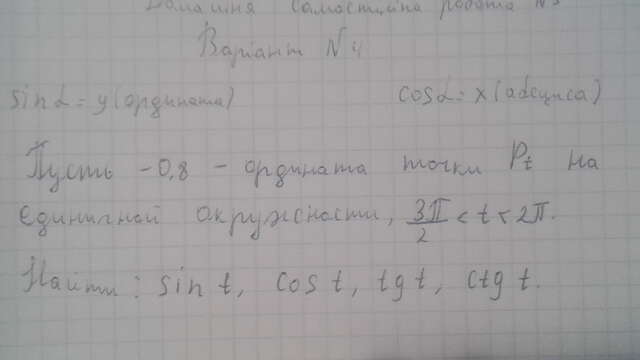 Домашня самостійна робота №3
Варіант №4
sin α = y (ордината)
cos α = x (абсциса)
Пусть -0,8 - ордината точки Pt на
единичной окружности, 3π/2 < t < 2π.
Найти: sin t, cos t, tg t, ctg t.